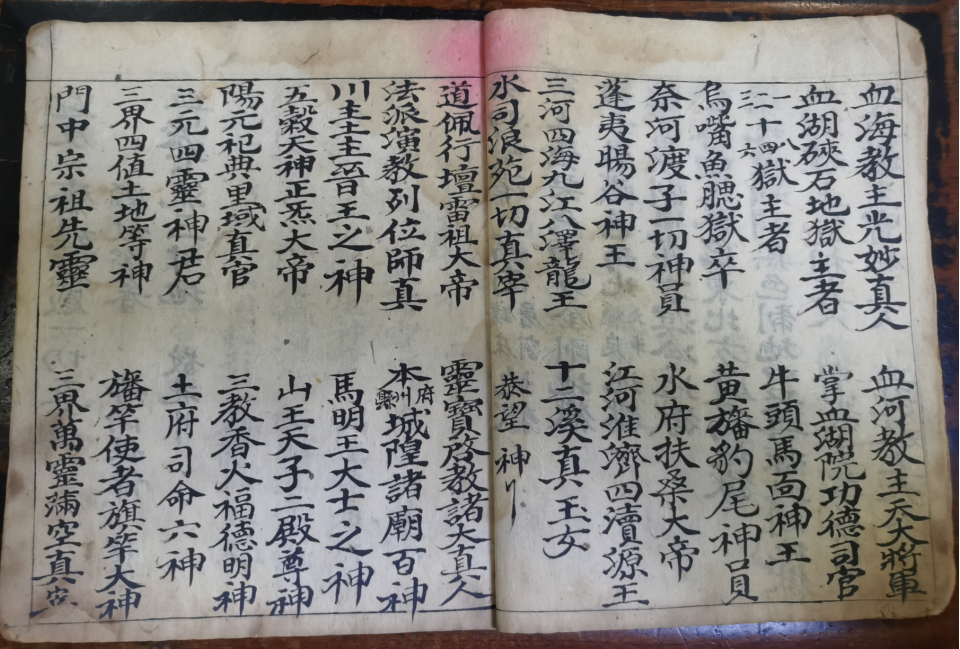 血海教主光妙真人 血河教主天大將軍
血湖硤石地獄主者 掌血湖院功德司官
一二三十四八六獄主者 牛頭馬面神王
烏嘴魚腮獄卒 黃旛豹尾神員
奈河渡子一切神員 水府扶桑大帝
蓬夷暘谷神王 江河淮濟四瀆源王
三河四海九江八澤龍王 十二溪真玉女
水司浪苑一切真宰 恭望 神
道佩行壇雷祖大帝 靈寶啓教諸大真人
法派演教列位師真 本府州縣城隍諸廟百神
川主主晉王之神 馬明王大士之神
五穀大神正炁大帝 山王天子二殿尊神
陽元祀典里域真官 三教香火福德明神
三元四靈神君 土府司命六神
三界四值土地等神 旛竿使者旗竿大神
門中宗祖先靈 三界萬靈滿空真宰